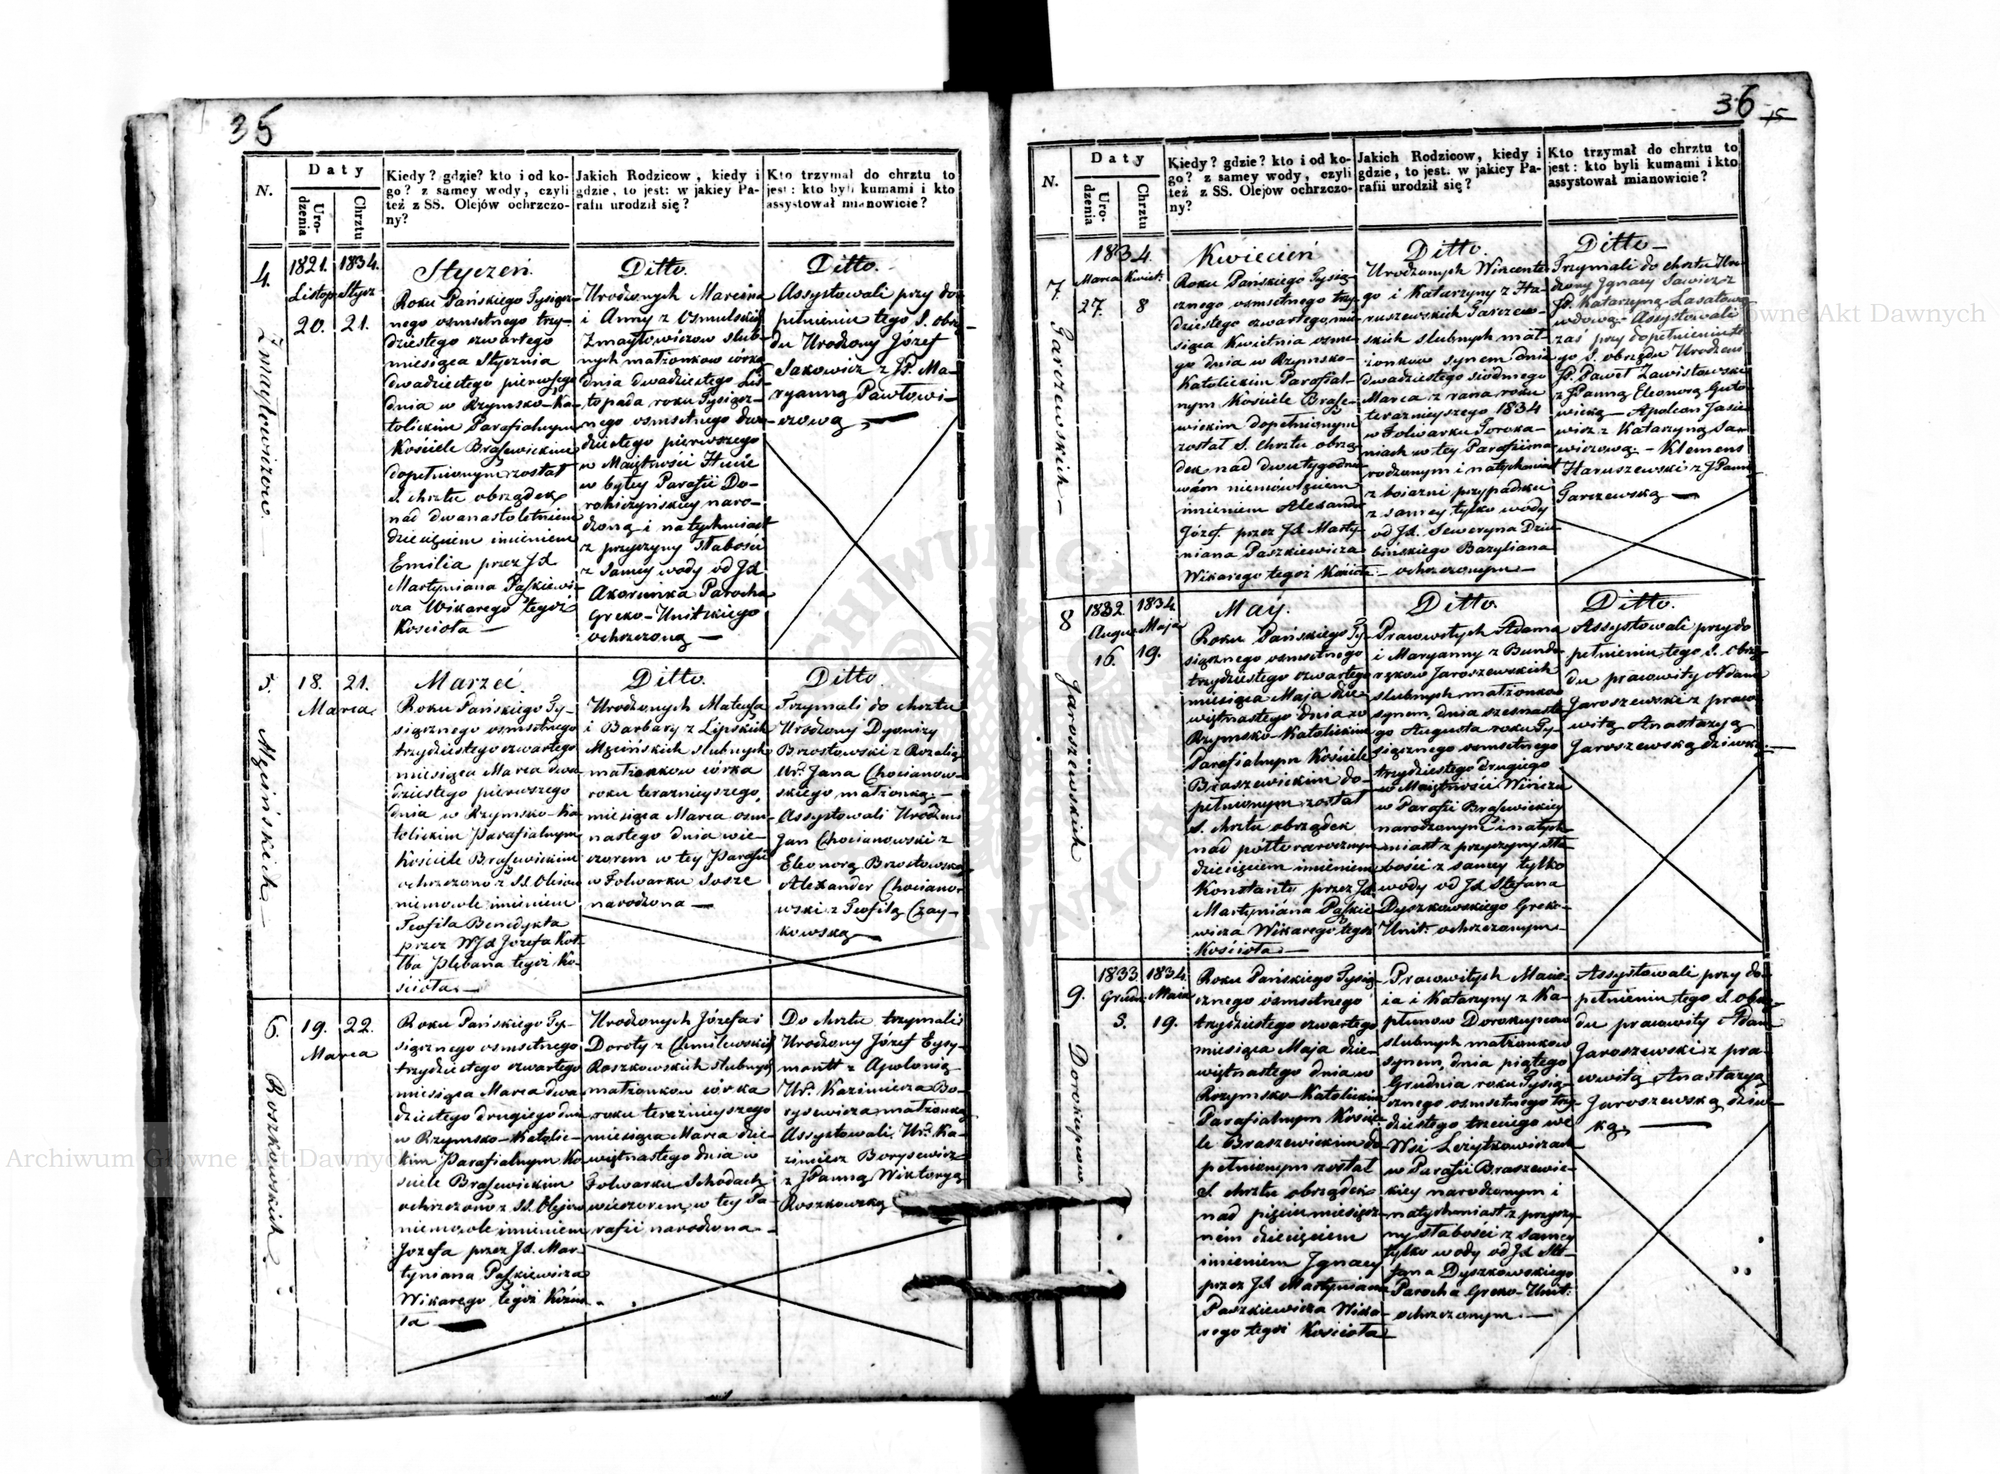 35
N.
Daty
Urodzenia
Chrztu
Kiedy? gdzie? kto i od kogo? z samey wody, czyli też z SS. Olejów ochrzczony?
Jakich Rodziców, kiedy i gdzie, to jest: w jakiey Parafii urodził się?
Kto trzymał do chrztu to jest: kto byli kumami i kto assystował mianowicie?
4.
Zmayłowiczow.
1821. 1834.
Listop. Stycz
20. 21.
Styczeń.
Roku Pańskiego Tysiącz-
nego osmsetnego trzy-
dziestego czwartego
miesiąca Stycznia
dwadziestego pierwszego
dnia w Rzymsko-Ka-
tolickim Parafialnym
Kościele Braszewickim
dopełnionym został
S. chrztu obrządek
nad dwanastoletniem
dziecięciem imieniem
Emilia przez Jd
Martyniana Paszkiewi-
cza Wikarego tegoż
Kościoła —
Ditto.
Urodzonych Marcina
i Anny z Osmulskich
Zmayłowiczow ślub-
nych małżonkow córkę
dnia dwadziestego Lis-
topada roku Tysiącz-
nego osmsetnego dwu-
dziestego pierwszego
w Maiętności Hucie
w byłey Parafii Do-
rohiczyńskiey naro-
dzoną i natychmiast
z przyczyny słabości
z samey wody od Jd
Parocha
Greko-Unitskiego
ochrzczoną —
Ditto.
Assystowali przy do-
pełnieniu tego S. obrzą-
du Urodzony Józef
Sakowicz z JP. Ma-
ryanną Pawłowi-
czową —
5.
Mzcińskich —
18. 21.
Marca.
Marzec.
Roku Pańskiego Ty-
siącznego osmsetnego
trzydziestego czwartego
miesiąca Marca dwa-
dziestego pierwszego
dnia w Rzymsko-Ka-
tolickim Parafialnym
Kościele Braszewickim
ochrzczono z SS. Olejow
niemowle imieniem
Teofila Benedykta
przez WJd Józefa Kot-
łba Plebana tegoż Ko-
ścioła. —
Ditto.
Urodzonych Mateusza
i Barbary z Lipskich
Mzcińskich ślubnych
małżonkow córka
roku teraznieyszego,
miesiąca Marca osm-
nastego dnia wie-
czorem w tey Parafii
w Folwarku Sosze
narodzona —
Ditto.
Trzymali do chrztu
Urodzony Dyonizy
Brzostowski z Rozalią
Ur: Jana Chocianow-
skiego małżonką. —
Assystowali Urodzeni
Jan Chocianowski z
Eleonorą Brzostowską
Alexander Chociano-
wski z Teofilą Czay-
kowską —
6.
Roszkowskich
19. 22.
Marca
Roku Pańskiego Ty-
siącznego osmsetnego
trzydziestego czwartego
miesiąca Marca dwa-
dziestego drugiego dnia
w Rzymsko-Katolic-
kim Parafialnym Ko-
ściele Braszewickim
ochrzczono z SS. Olejow
niemowle imieniem
Jozefa przez Jd. Mar-
tyniana Paszkiewicza
Wikarego tegoż Kościo-
ła —
Urodzonych Józefa i
Doroty z Chmielewskich
Roszkowskich ślubnych
małżonkow córka
roku teraznieyszego
miesiąca Marca dzie-
więtnastego dnia w
Folwarku Schodach
wieczorem w tey Pa-
rafii narodzona —
Do chrztu trzymali
Urodzony Józef Eysy-
montt z Apolonią
Ur: Kazimierza Bo-
rysewicza małżonką
Assystowali Ur: Ka-
zimierz Borysewicz
z JPanną Wiktoryą
Roszkowską
36
15
N.
Daty
Urodzenia
Chrztu
Kiedy? gdzie? kto i od kogo? z samey wody, czyli też z SS. Olejów ochrzczony?
Jakich Rodziców, kiedy i gdzie, to jest. w jakiey Parafii urodził się?
Kto trzymał do chrztu to jest: kto byli kumami i kto assystował mianowicie?
7.
Garczewskich —
1834.
Marca Kwiet:
27. 8
Kwiecień
Roku Pańskiego Tysią-
cznego osmsetnego trzy-
dziestego czwartego, mie-
siąca Kwietnia osme-
go dnia w Rzymsko-
Katolickim Parafial-
nym Kościele Brasze-
wickim dopełnionym
został S. chrztu obrzą-
dek nad dwutygodnio-
wém niemowlęciem
imieniem Alexandr
Józef. przez Jd. Marty-
niana Paszkiewicza
Wikarego tegoż Kościoła —
Ditto.
Urodzonych Wincente-
go i Katarzyny z Ha-
ruszewskich Garczew-
skich ślubnych mał-
żonków synem dnia
dwadziestego siódmego
Marca z rana roku
teraznieyszego 1834
w Folwarku Toroka-
niach w tey Parafii na-
rodzonym i natychmiast
z boiazni przypadku
z samey tylko wody
od Jd. Seweryna Dzie-
bińskiego Bazyliana
ochrzczonym —
Ditto —
Trzymali do chrztu Uro-
dzony Ignacy Sawicz z
JP. Katarzyną Lasotową
wdową — Assystowali
zas przy dopełnieniu te-
go S. obrzędu Urodzeni
JP. Paweł Zawistowski
z JPanną Eleonorą Guto-
wicką — Apolon Jasie-
wicz z Katarzyną Sa-
wiczową. — Klemens
Haruszewski z JPanną
Garczewską —
8
Jaroszewskich
1832. 1834.
August Maja
16. 19.
May.
Roku Pańskiego Ty-
siącznego osmsetnego
trzydziestego czwartego
miesiąca Maja dzie-
więtnastego dnia w
Rzymsko-Katolickim
Parafialnym Kościele
Braszewickim do-
pełnionym został
S. chrztu obrządek
nad półtororocznym
dziecięciem imieniem
Konstanty przez Jd
Martyniana Paszkie-
wicza Wikarego tegoż
Kościoła —
Ditto.
Pracowitych Adama
i Maryanny z Bundo-
rzkow Jaroszewskich
ślubnych małżonkow
synem, dnia szesnaste-
go Augusta roku Ty-
siącznego osmsetnego
trzydziestego drugiego
w Maiętności Wińcza
w Parafii Braszewickiey
narodzonym i natych-
miast z przyczyny sła-
bości z samey tylko
wody od Jd. Stefana
Dyszkowskiego Greko-
Unit: ochrzczonym —
Ditto.
Assystowali przy do
pełnieniu tego S. obrzą-
du pracowity Adam
Jaroszewski z praco-
witą Anastazyą
Jaroszewską dziewką —
9.
Dorokupcow
1833 1834.
Grudn: Maia
5. 19.
Roku Pańskiego Tysią-
cznego osmsetnego
trzydziestego czwartego
miesiąca Maja dzie-
więtnastego dnia w
Rzymsko-Katolickim
Parafialnym Koście-
le Braszewickim do
pełnionym został
S. chrztu obrządek
nad pięciu miesięcz-
nem dziecięciem
imieniem Ignacy
przez Jd Martyniana
Paszkiewicza Wika-
rego tegoż Kościoła
Pracowitych Macie-
ia i Katarzyny z Ka-
płunow Dorokupcow
ślubnych małżonkow
synem, dnia piątego
Grudnia roku Tysią-
cznego osmsetnego trzy-
dziestego trzeciego we
Wsi Leżytkowiczach
w Parafii Braszewic-
kiey narodzonym i
natychmiast z przyczy-
ny słabości z samey
tylko wody od Jd Ste-
fana Dyszkowskiego
Parocha Greko-Unit:
ochrzczonym. —
Assystowali przy do-
pełnieniu tego S. obrzą-
du pracowity Adam
Jaroszewski z pra-
cowitą Anastazyą
Jaroszewską dziew-
ką, —
Archiwum Główne Akt Dawnych
Archiwum Główne Akt Dawnych